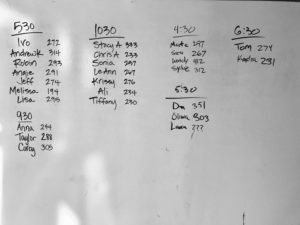 530
Ivo 272
Andrew K 314
Robin 293
Angie 291
Jeff 274
Melissa 194
Lisa 295
930
Anna 244
Taylor 288
Corey 305
1030
Stacy A 333
Chris A 233
Sonia 257
LeAnn 267
Krissy 276
Ali 234
Tiffany 230
4:30
297
267
312
Sylvie 312
5:30
Dan 351
Olivia 303
Laura ???
6:30
Tom 274
Kayla 231